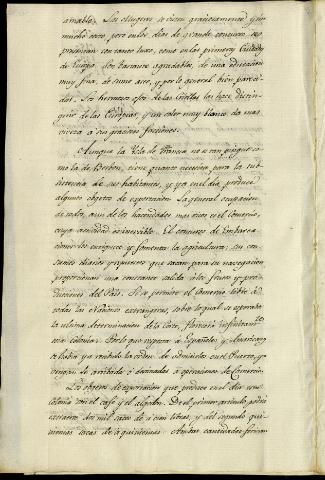 amables. Las Mugeres se visten graciosamente y sin
mucho costo, pero en los dias de grande concurso, se
presentan con tanto luxo, como en las primeras Ciudades
de Europa. Son bastante agradables, de una educacion
muy fina, de sumo aseo, y por lo general bien parci-
das. Los hermosos ojos de las Criollas las hace distin-
guir de las Europeas, y un color muy blanco da mas
viveza a sus graciosas facciones.
Aunque la Isla de Francia no es tan pingue co-
mo la de Borbon, tiene quanto necesita para la sub-
sistencia de sus habitantes, y ya en el dia produce
algunos objetos de exportacion. La general ocupacion
de todos, aun de los hacendados mas ricos es el Comercio,
cuya actividad es increible. El concurso de Embarca-
ciones los enriquece y fomenta la agricultura; sus con-
sumos diarios y repuestos que sacan para su navegacion
proporcionan una constante salida a los frutos y pro-
ducciones del Pais. Si se permitiere el Comercio libre à
todas las Naciones extrangeras, sobre lo qual se esperaba
la ultima determinacion de la Corte, florecerà infinitam.te
esta colonia. Por lo que respecta à Españoles y Americanos
se habia ya recibido la orden de admitirlos en el Puerto, ya
vengan de arribada ò destinados à operaciones de Comercio.
Los objetos de exportacion que produce en el dia esta
colonia son el cafè y el algodon. De el primer articulo, podrà
extraerse dos mil sacos de a cien libras, y del segundo qui-
nientas bacas de à quinientas. Ambas cantidades forman